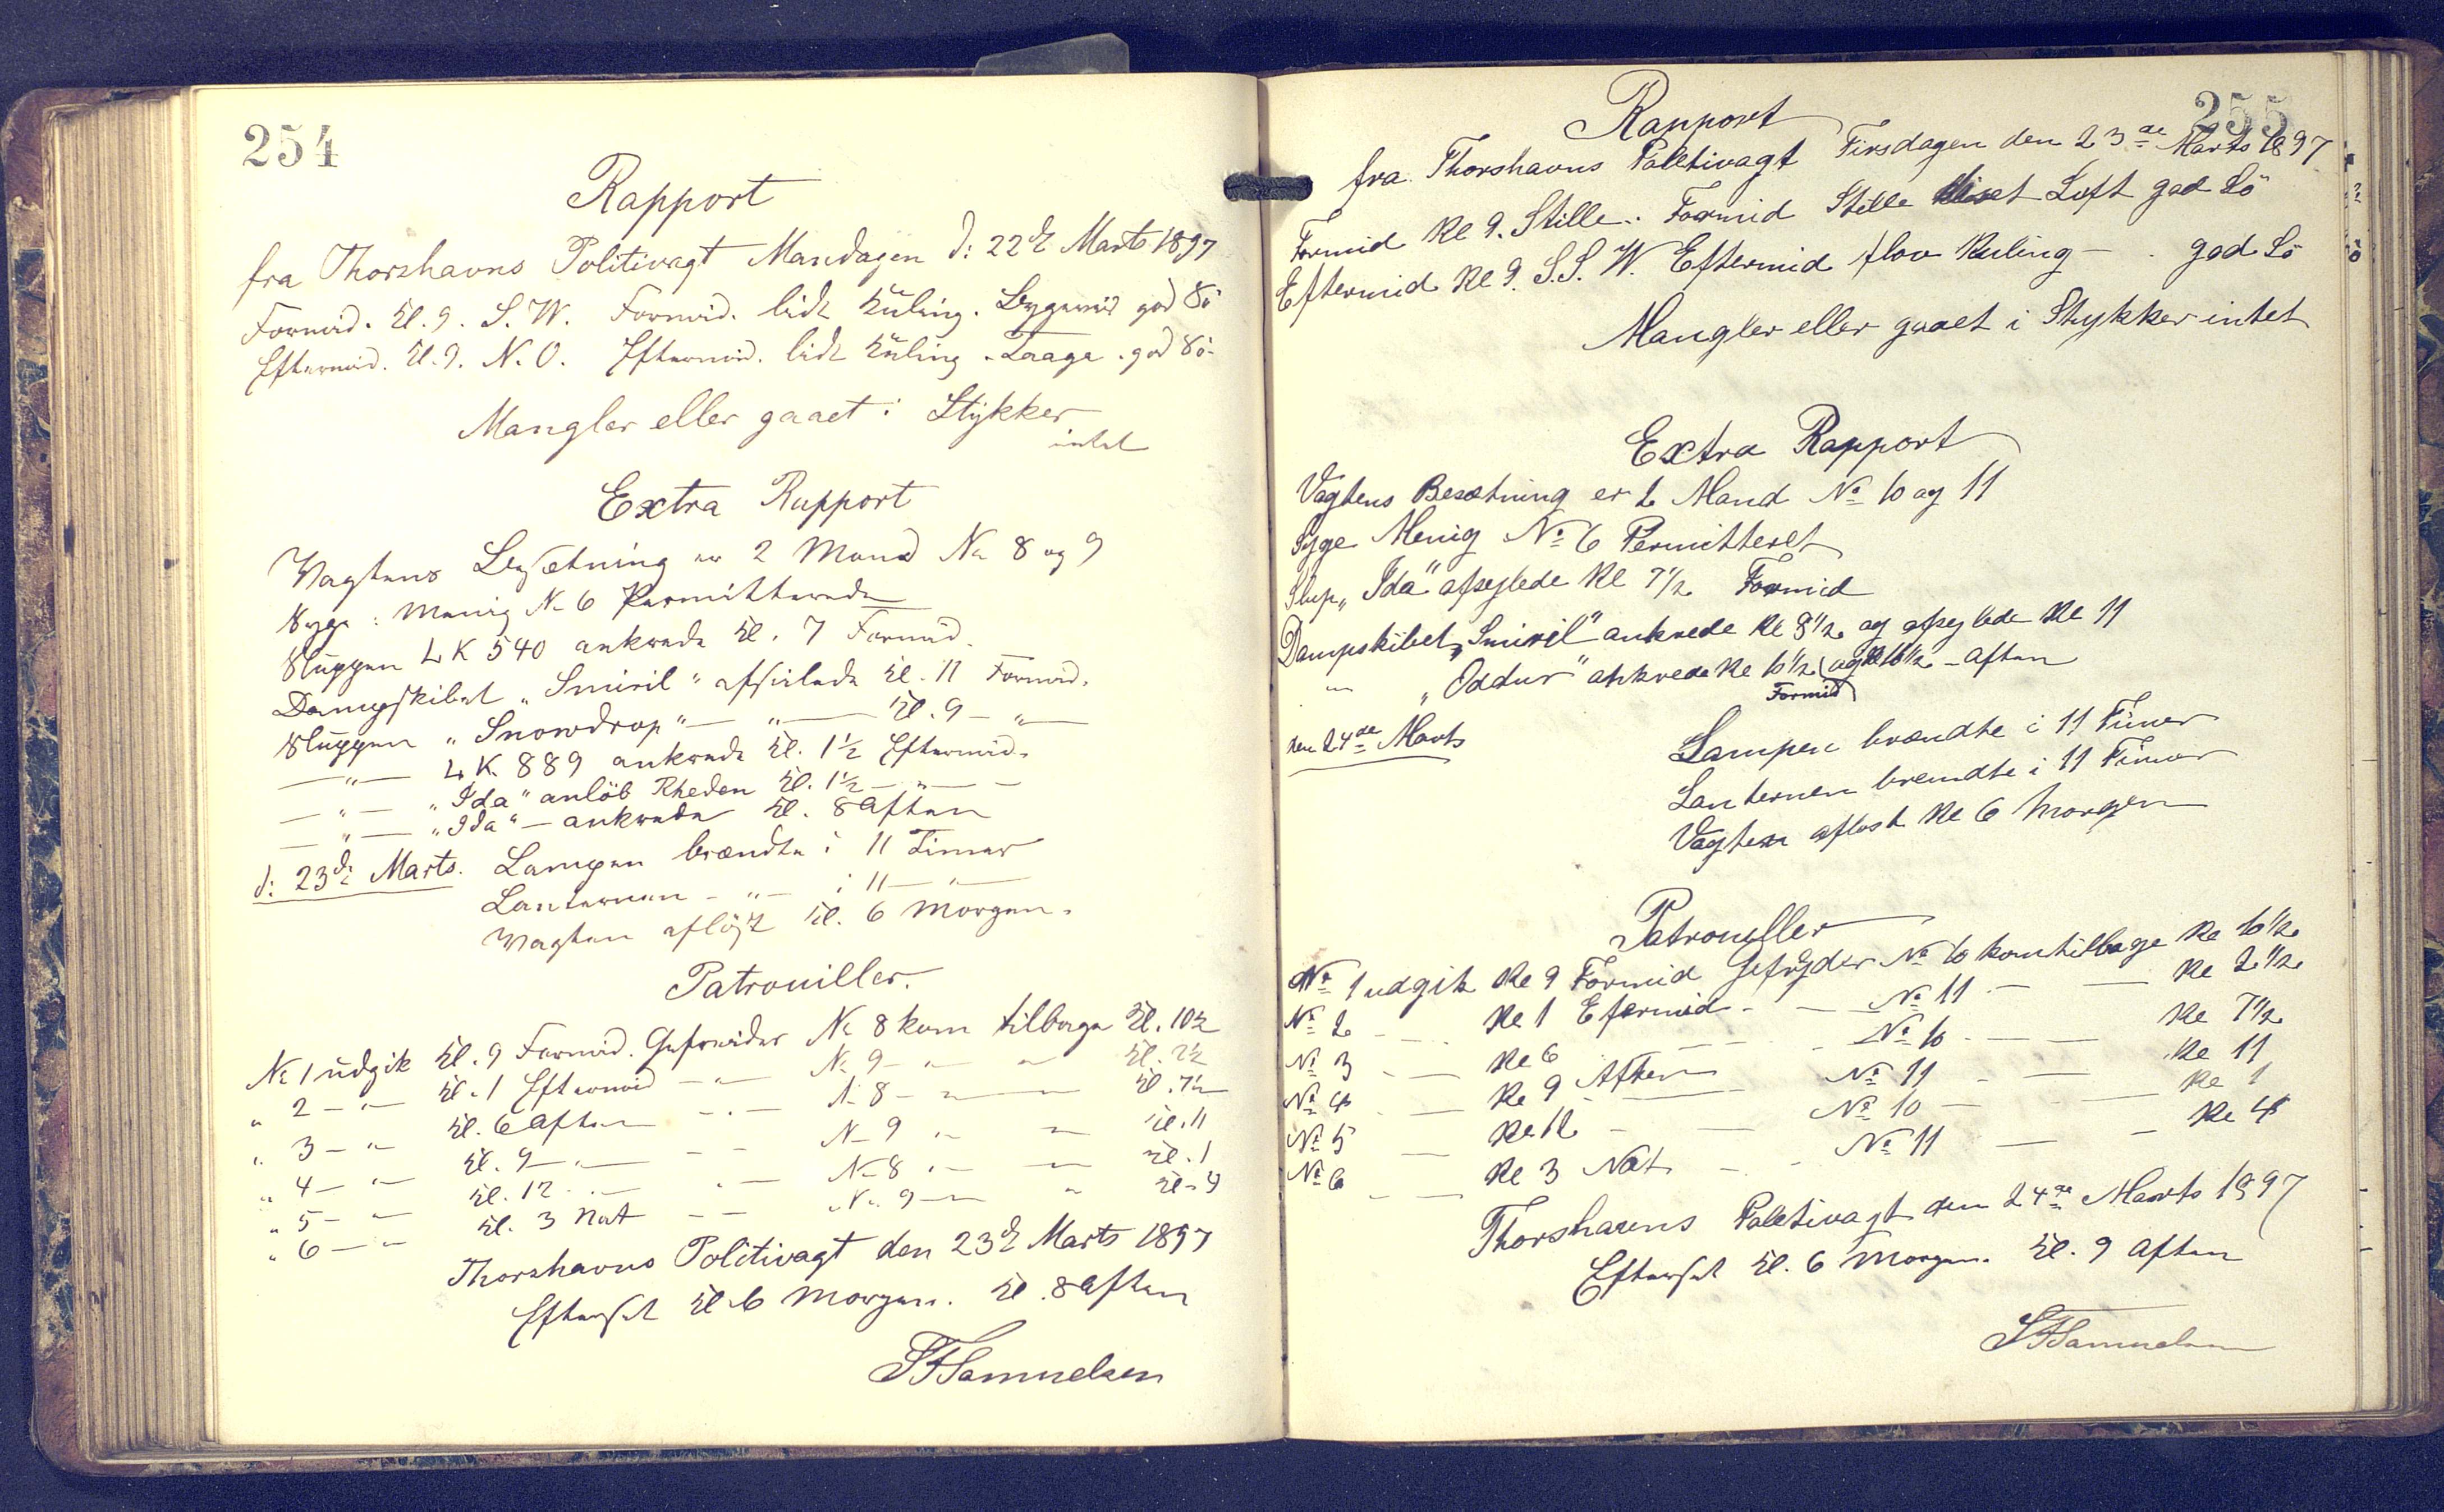 254
Rapport
fra Thorshavns Politivagt Mandagen d: 22d Marts 1897
Formid. Kl. 9. S. W. Formid. lidt Kuling. Bygeveir god Sö
Eftermid. Kl. 9. N. O. Eftermid. lidt Kuling - Taage . god Sö
Mangler eller gaaet i Stykker
intet
Extra Rapport
Vagtens Besætning er 2 Mand No 8 og 9
Syge : Menig No 6 Permitterede
Sluppen LK 540 ankrede Kl. 7 Formid.
Dampskibet „Smiril" afseilede Kl. 11 Formid.
Sluppen „Snowdrop" — „ — Kl. 9 — „ —
— „ — LK. 889 ankrede Kl. 1½ Eftermid.
— „ — „Ida" anlöb Rheden Kl. 1½ — „ —
— „ — „Ida" — ankrede Kl. 8 Aften
d: 23d: Marts. Lampen brændte i 11 Timer
Lanternen — „ — i 11 — „ —
Vagten aflöst Kl. 6 Morgen.
Patrouiller.
No 1 udgik Kl. 9 Formid. Gefreider No 8 kom tilbage Kl. 10½
„ 2 — „ — Kl. 1 Eftermid — „ — No 9 — „ — „ Kl. 2½
„ 3 — „ Kl. 6 Aften — „ — N 8 — „ — „ Kl. 7½
„ 4 — „ — Kl. 9 — „ — - - N 9 „ — „ Kl. 11
„ 5 — „ Kl. 12 — „ — - - N 8 „ — „ Kl. 1
„ 6 — „ Kl. 3 Nat — — No 9 — „ „ Kl. 4
Thorshavns Politivagt den 23d Marts 1897
Efterset Kl 6 Morgen. Kl. 8 Aften
SFSamuelsen
255
Rapport
fra Thorshavns Politivagt Tirsdagen den 23de Marts 1897
Formid Kl 9. Stille. Formid Stille diset Luft god Sö
Eftermid Kl 9. S.S. W. Eftermid flov Kuling — . god Sö
Mangler eller gaaet i Stykker intet
Extra Rapport
Vagtens Besætning er 2 Mand No 10 og 11
Syge Menig No 6 Permitteret
Slup „Ida" afseylede Kl 7½ Formid
Dampskibet „Smiril" ankrede Kl 8½ og afseylede Kl 11
— „Oddur" ankrede Kl 10½ (og Kl 10½ - Aften
Formid
den 24de Marts
Lampen brændte i 11 Timer
Lanternen brendte i 11 Timer
Vagten aflost Kl 6 Morgen
Patrouiller
No 1 udgik Kl 9 Formid Gefrejder No 10 kom tilbage Kl 10½
No 2 - - Kl 1 Efermid - — No 11 — — Kl 2½
No 3 - — Kl 6 — — No 10 — — Kl 7½
No 4 - — Kl 9 Aften — No 11 - — Kl 11
No 5 — Kl 12 - — No 10 — — Kl 1
No 6 - — Kl 3 Nat - - No 11 — - Kl 4
Thorshavns Politivagt den 24de Marts 1897
Efterset Kl. 6 Morgen. Kl. 9 Aften
SFSamuelsen